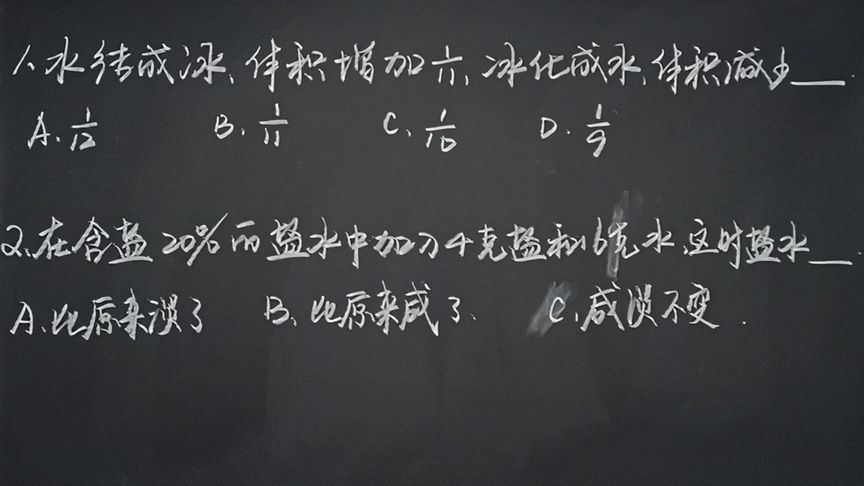 1、水结成冰、体积增加1/11、冰化成水、体积减少___
A、1/12 B、1/11 C、1/10 D、1/9
2、在含盐20%的盐水中加入4克盐和16克水、这时盐水___.
A、比原来淡了 B、比原来咸了. C、咸淡不变.